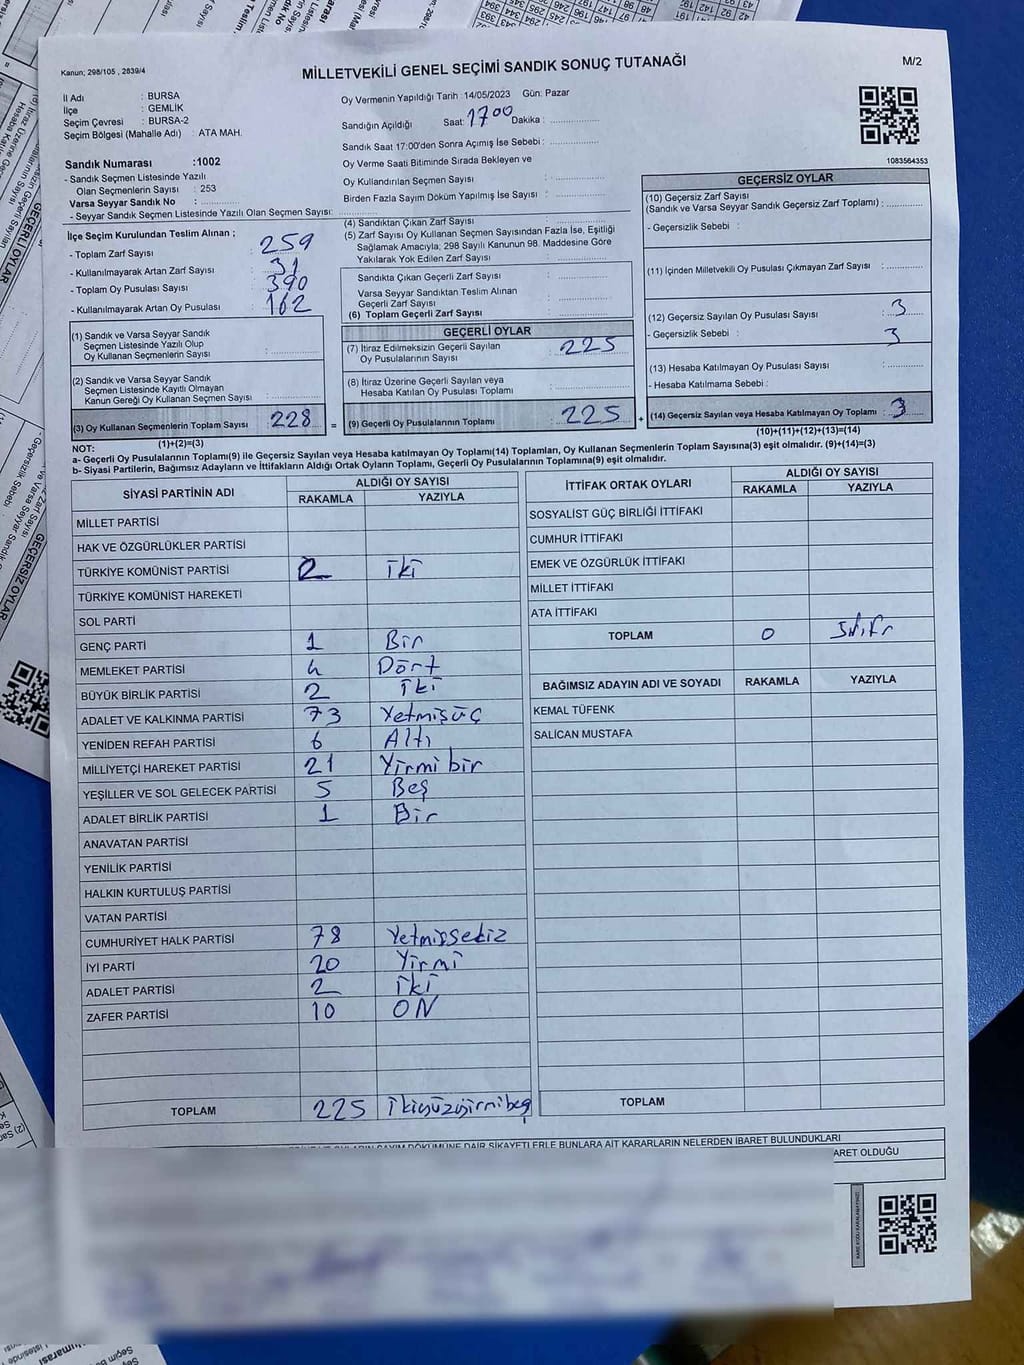 Kanun; 298/105 , 2839/4
MİLLETVEKİLİ GENEL SEÇİMİ SANDIK SONUÇ TUTANAĞI
M/2
İl Adı : BURSA
İlçe : GEMLİK
Seçim Çevresi : BURSA-2
Seçim Bölgesi (Mahalle Adı) : ATA MAH.
Sandık Numarası :1002
- Sandık Seçmen Listesinde Yazılı
Olan Seçmenlerin Sayısı : 253
Varsa Seyyar Sandık No :
- Seyyar Sandık Seçmen Listesinde Yazılı Olan Seçmen Sayısı:
Oy Vermenin Yapıldığı Tarih :14/05/2023 Gün: Pazar
Sandığın Açıldığı Saat: 17 00 Dakika :
Sandık Saat 17:00'den Sonra Açımış İse Sebebi :
Oy Verme Saati Bitiminde Sırada Bekleyen ve
Oy Kullandırılan Seçmen Sayısı :
Birden Fazla Sayım Döküm Yapılmış İse Sayısı :
1083564353
İlçe Seçim Kurulundan Teslim Alınan ;
- Toplam Zarf Sayısı : 259
- Kullanılmayarak Artan Zarf Sayısı : 31
- Toplam Oy Pusulası Sayısı : 390
- Kullanılmayarak Artan Oy Pusulası : 162
(1) Sandık ve Varsa Seyyar Sandık
Seçmen Listesinde Yazılı Olup
Oy Kullanan Seçmenlerin Sayısı :
(2) Sandık ve Varsa Seyyar Sandık
Seçmen Listesinde Kayıtlı Olmayan
Kanun Gereği Oy Kullanan Seçmen Sayısı :
(3) Oy Kullanan Seçmenlerin Toplam Sayısı : 228
(1)+(2)=(3)
(4) Sandıktan Çıkan Zarf Sayısı :
(5) Zarf Sayısı Oy Kullanan Seçmen Sayısından Fazla İse, Eşitliği
Sağlamak Amacıyla; 298 Sayılı Kanunun 98. Maddesine Göre
Yakılarak Yok Edilen Zarf Sayısı :
Sandıkta Çıkan Geçerli Zarf Sayısı :
Varsa Seyyar Sandıktan Teslim Alınan
Geçerli Zarf Sayısı :
(6) Toplam Geçerli Zarf Sayısı :
GEÇERLİ OYLAR
(7) İtiraz Edilmeksizin Geçerli Sayılan
Oy Pusulalarının Sayısı : 225
(8) İtiraz Üzerine Geçerli Sayılan veya
Hesaba Katılan Oy Pusulası Toplamı :
= (9) Geçerli Oy Pusulalarının Toplamı : 225 +
GEÇERSİZ OYLAR
(10) Geçersiz Zarf Sayısı
(Sandık ve Varsa Seyyar Sandık Geçersiz Zarf Toplamı) :
- Geçersizlik Sebebi :
(11) İçinden Milletvekili Oy Pusulası Çıkmayan Zarf Sayısı :
(12) Geçersiz Sayılan Oy Pusulası Sayısı : 3
- Geçersizlik Sebebi : 3
(13) Hesaba Katılmayan Oy Pusulası Sayısı :
- Hesaba Katılmama Sebebi :
(14) Geçersiz Sayılan veya Hesaba Katılmayan Oy Toplamı : 3
(10)+(11)+(12)+(13)=(14)
NOT:
a- Geçerli Oy Pusulalarının Toplamı(9) ile Geçersiz Sayılan veya Hesaba katılmayan Oy Toplamı(14) Toplamları, Oy Kullanan Seçmenlerin Toplam Sayısına(3) eşit olmalıdır. (9)+(14)=(3)
b- Siyasi Partilerin, Bağımsız Adayların ve İttifakların Aldığı Ortak Oyların Toplamı, Geçerli Oy Pusulalarının Toplamına(9) eşit olmalıdır.
SİYASİ PARTİNİN ADI ALDIĞI OY SAYISI
RAKAMLA YAZIYLA
MİLLET PARTİSİ
HAK VE ÖZGÜRLÜKLER PARTİSİ
TÜRKİYE KOMÜNİST PARTİSİ 2 iki
TÜRKİYE KOMÜNİST HAREKETİ
SOL PARTİ
GENÇ PARTİ 1 Bir
MEMLEKET PARTİSİ 4 Dört
BÜYÜK BİRLİK PARTİSİ 2 iki
ADALET VE KALKINMA PARTİSİ 73 Yetmişüç
YENİDEN REFAH PARTİSİ 6 Altı
MİLLİYETÇİ HAREKET PARTİSİ 21 Yirmi bir
YEŞİLLER VE SOL GELECEK PARTİSİ 5 Beş
ADALET BİRLİK PARTİSİ 1 Bir
ANAVATAN PARTİSİ
YENİLİK PARTİSİ
HALKIN KURTULUŞ PARTİSİ
VATAN PARTİSİ
CUMHURİYET HALK PARTİSİ 78 Yetmişsekiz
İYİ PARTİ 20 Yirmi
ADALET PARTİSİ 2 iki
ZAFER PARTİSİ 10 ON
TOPLAM 225 ikiyüzyirmibeş
İTTİFAK ORTAK OYLARI ALDIĞI OY SAYISI
RAKAMLA YAZIYLA
SOSYALİST GÜÇ BİRLİĞİ İTTİFAKI
CUMHUR İTTİFAKI
EMEK VE ÖZGÜRLÜK İTTİFAKI
MİLLET İTTİFAKI
ATA İTTİFAKI
TOPLAM 0 Sıfır
BAĞIMSIZ ADAYIN ADI VE SOYADI RAKAMLA YAZIYLA
KEMAL TÜFENK
SALİCAN MUSTAFA
TOPLAM
OYLARIN SAYIM DÖKÜMÜNE DAİR ŞİKAYETLERLE BUNLARA AİT KARARLARIN NELERDEN İBARET BULUNDUKLARI
ARET OLDUĞU